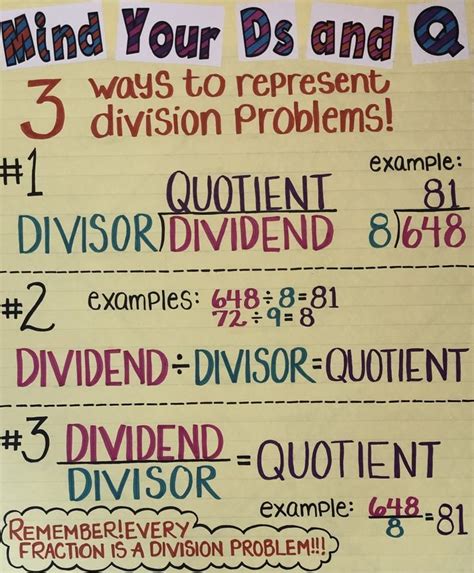 Mind Your Ds and Q
3 ways to represent
division Problems!
#1
example:
QUOTIENT
DIVISOR)DIVIDEND
81
8)648
#2 examples: 648÷8=81
72÷9=8
DIVIDEND÷DIVISOR=QUOTIENT
#3 DIVIDEND
DIVISOR
=QUOTIENT
example: 648
8
=81
REMEMBER!EVERY
FRACTION IS A DIVISION PROBLEM!!!